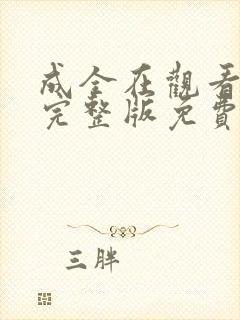 成全在觀看
完整版免費
三胖